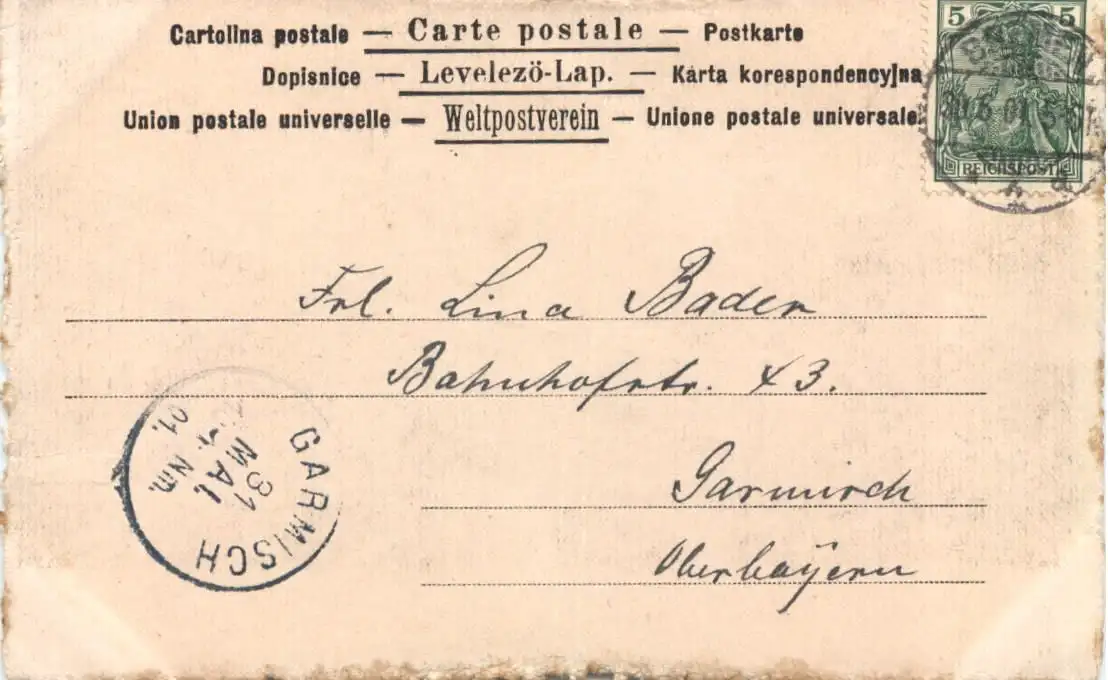 Cartolina postale — Carte postale — Postkarte
Dopisnice — Levelezö-Lap. — Karta korespondencyjna
Union postale universelle — Weltpostverein — Unione postale universale.
5 5
REICHSPOST
Frl. Lina Bader
Bahnhofstr. 43.
Garmisch
Oberbayern
GARMISCH
31
MAI
Nm.
01.